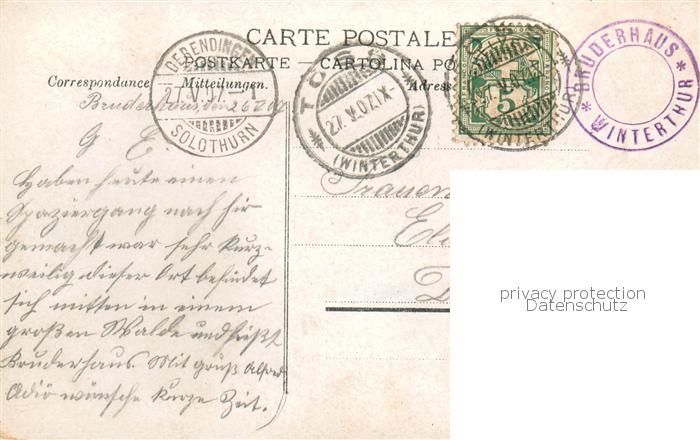 CARTE POSTALE
POSTKARTE — CARTOLINA PO
Correspondance Mitteilungen. Adress
DERENDINGEN
27.V.07.
SOLOTHURN
TÖSS
27.V.07.IX-
(WINTERTHUR)
5
(WINTERTHUR)
* BRUDERHAUS *
WINTERTHUR
Bruderhaus, den 26.
G. E.
Haben heute einen
Spaziergang nach hir
gemacht war sehr kurz-
weilig dieser Ort befindet
sich mitten in einem
großen Walde und heißt
Bruderhaus. Mit gruß Alfred
Adiö wünsche kurze Zeit.
Frauen
privacy protection
Datenschutz